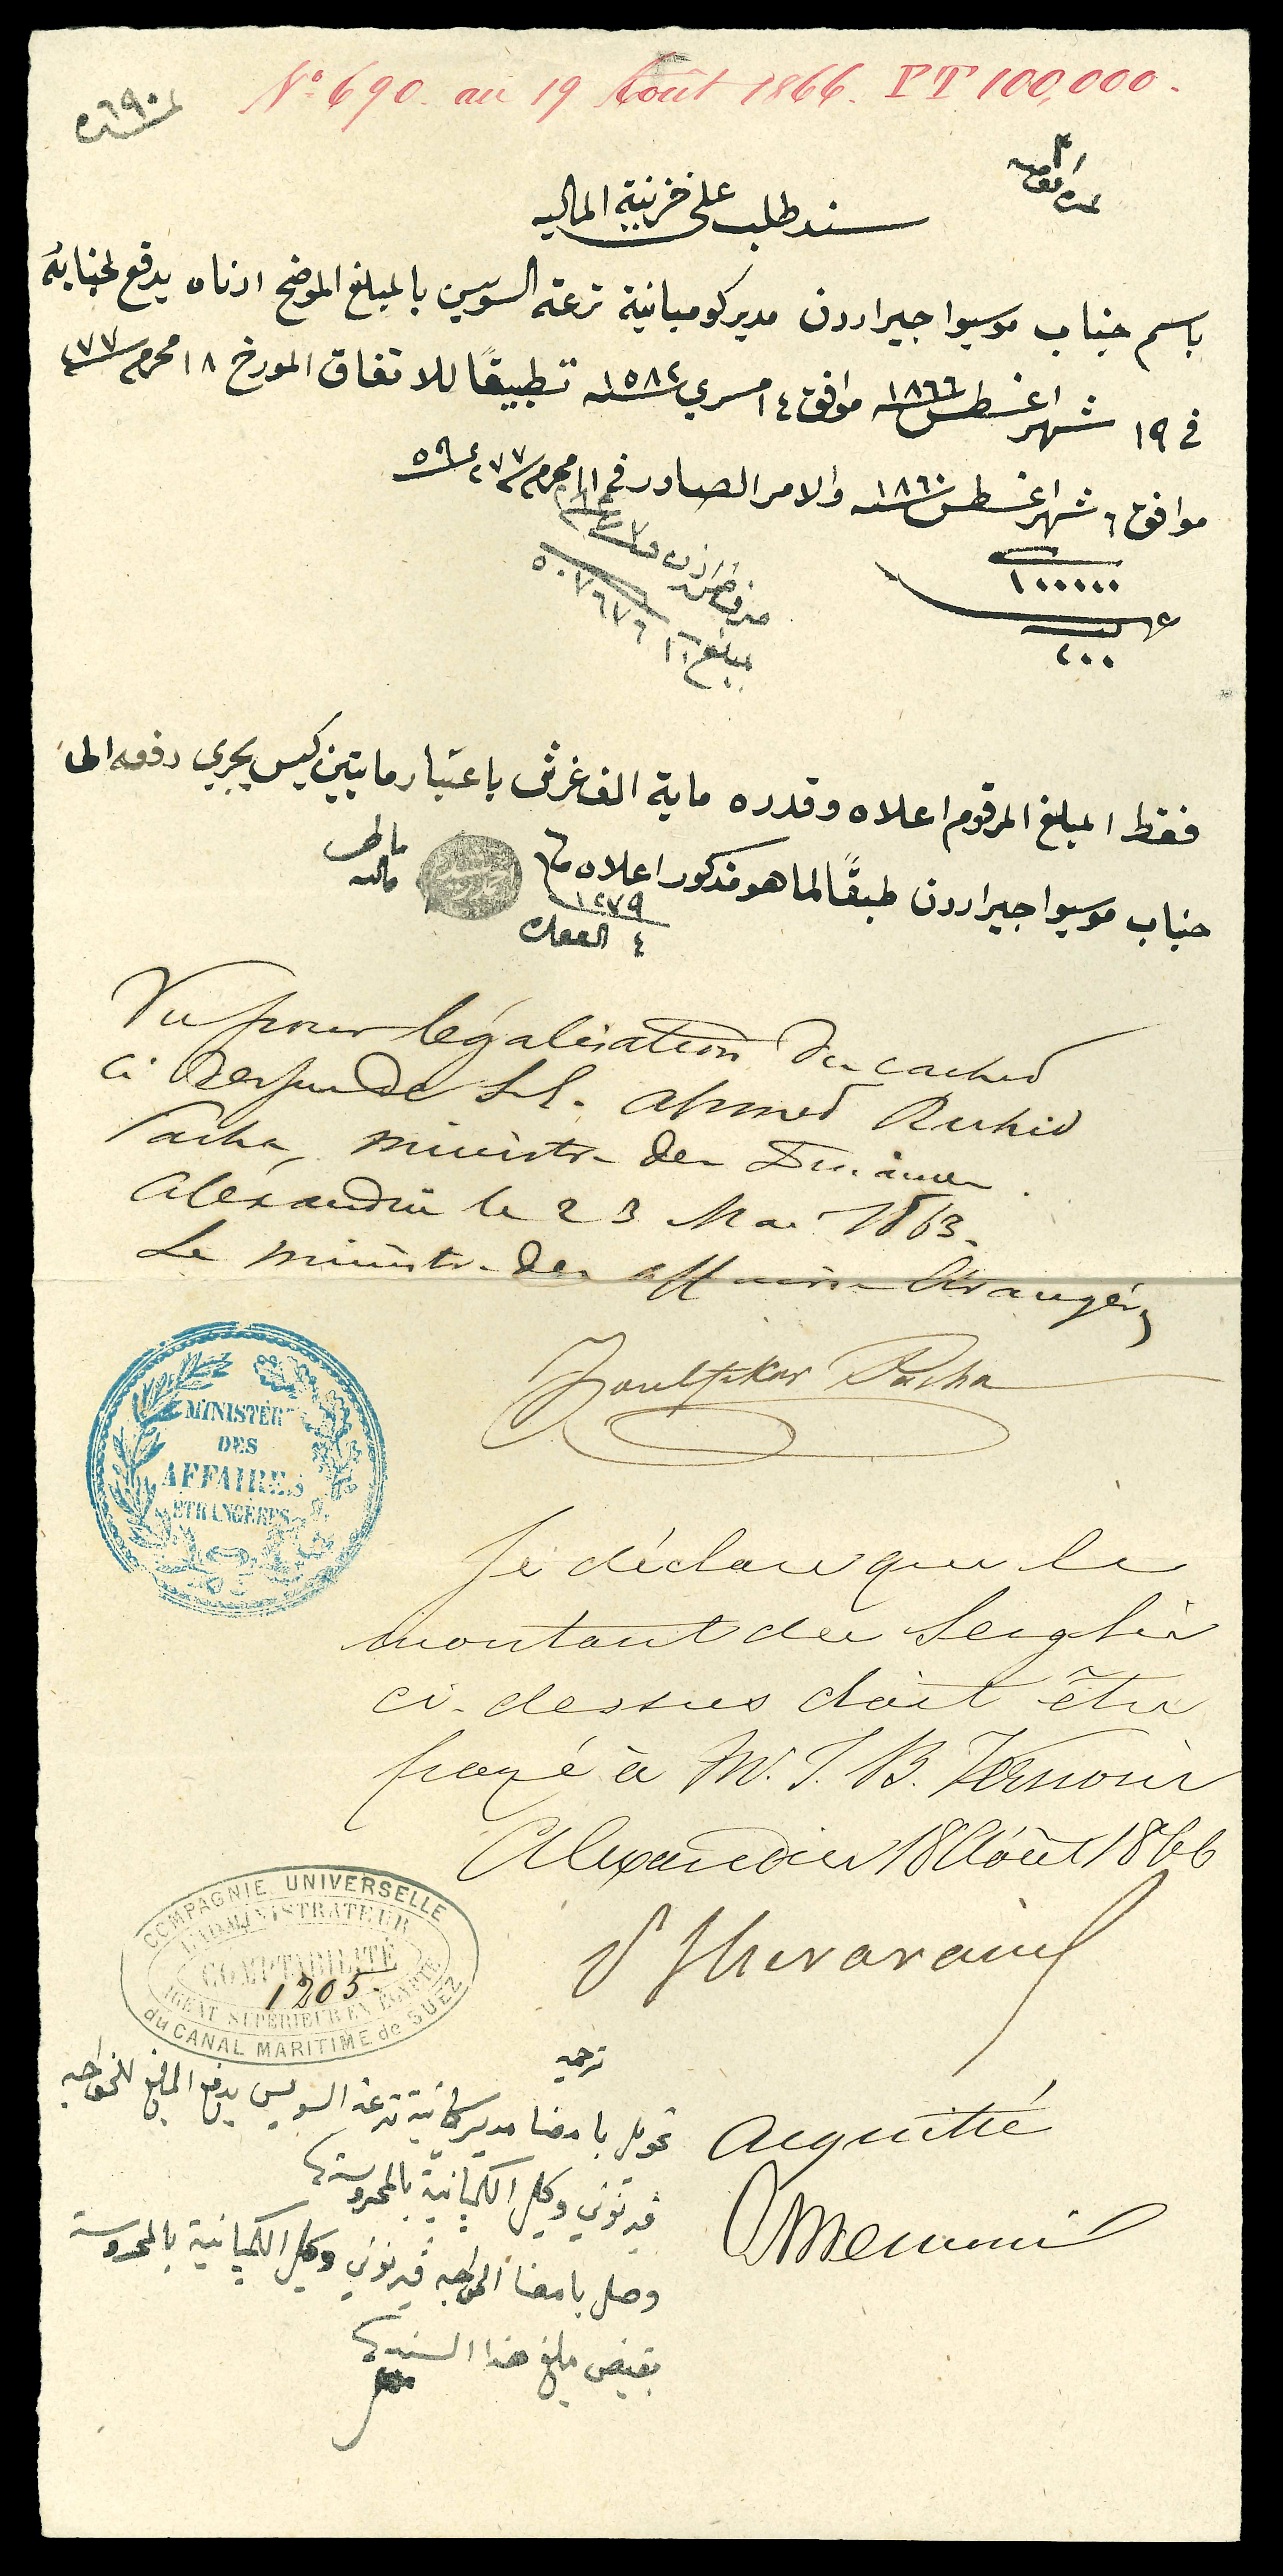 No. 690. au 19 Août 1866. PT 100,000.
٦٩٠
سند طلب على خزينة المالیه
باسم جناب موسيوا جيراردن مدير كومبانية ترعة السويس بالمبلغ الموضح ادناه يدفع لجنابه
فى ١٩ شهر اغسطس سنه ١٨٦٦ موافق ١٤ مسري سنه ١٥٨٢ تطبيقًا للاتفاق المورخ ١٨ محرم سنه ٧٧
موافق ٦ شهر اغسطس سنه ١٨٦٠ والامر الصادر فى محرم سنه ٧٧
١٠٠٠٠٠
٢٠٠
فقط المبلغ المرقوم اعلاه وقدره ماية الف غرش باعتبار مايتين كيس يجري دفعه الى
جناب موسيوا جيراردن طبقًا لما هو مذكور اعلاه
١٢٧٩
Vu pour légalisation du cachet
ci dessus de S.E. Ahmed Rechid
Pacha, ministre des Finances.
Alexandrie le 23 Mai 1863.
Le ministre des affaires Etrangères
Zoulfikar Pacha
MINISTÈRE
DES
AFFAIRES
ÉTRANGÈRES
Je déclare que le
montant du Serghis
ci-dessus doit être
payé à M. J. B. Vernoni
Alexandrie 18 Août 1866
COMPAGNIE UNIVERSELLE
L'ADMINISTRATEUR
COMPTABILITÉ
1205.
AGENT SUPÉRIEUR EN ÉGYPTE
du CANAL MARITIME de SUEZ
ترجمه
تحويل بامضا مدير كمبانية ترعة السويس بدفع المبلغ للخواجه
ڤيرنوني وكيل الكمبانية بالمحروسة
وصل بامضا الخواجه ڤيرنوني وكيل الكمبانية بالمحروسة
بقبض مبلغ هذا السند
Acquitté